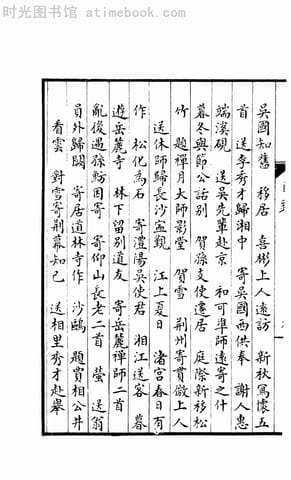 时光图书馆 atimebook.com
吳國知舊　移居　喜彬上人遠訪　新秋寫懷五
首　送李秀才歸湘中　寄吳國西供奉　謝人惠
端溪硯　送吳先輩赴京　和可準師遠寄之什
暮冬與節公話別　賀孫支使遷居　庭際新移松
竹　題禪月大師影堂　賀雪　荆州寄貫微上人
送休師歸長沙寧覲　江上夏日　渚宮春日有
作　松化為石　寄澧陽吳使君　湘江送客　暮
遊岳麓寺　林下留別道友　寄岳麓禪師二首
亂後遇孫魴因寄　寄仰山長老二首　螢　送翁
員外歸閩　寄居道林寺作　沙鷗　題賈相公井
看雲　對雪寄荆幕知己　送相里秀才赴舉